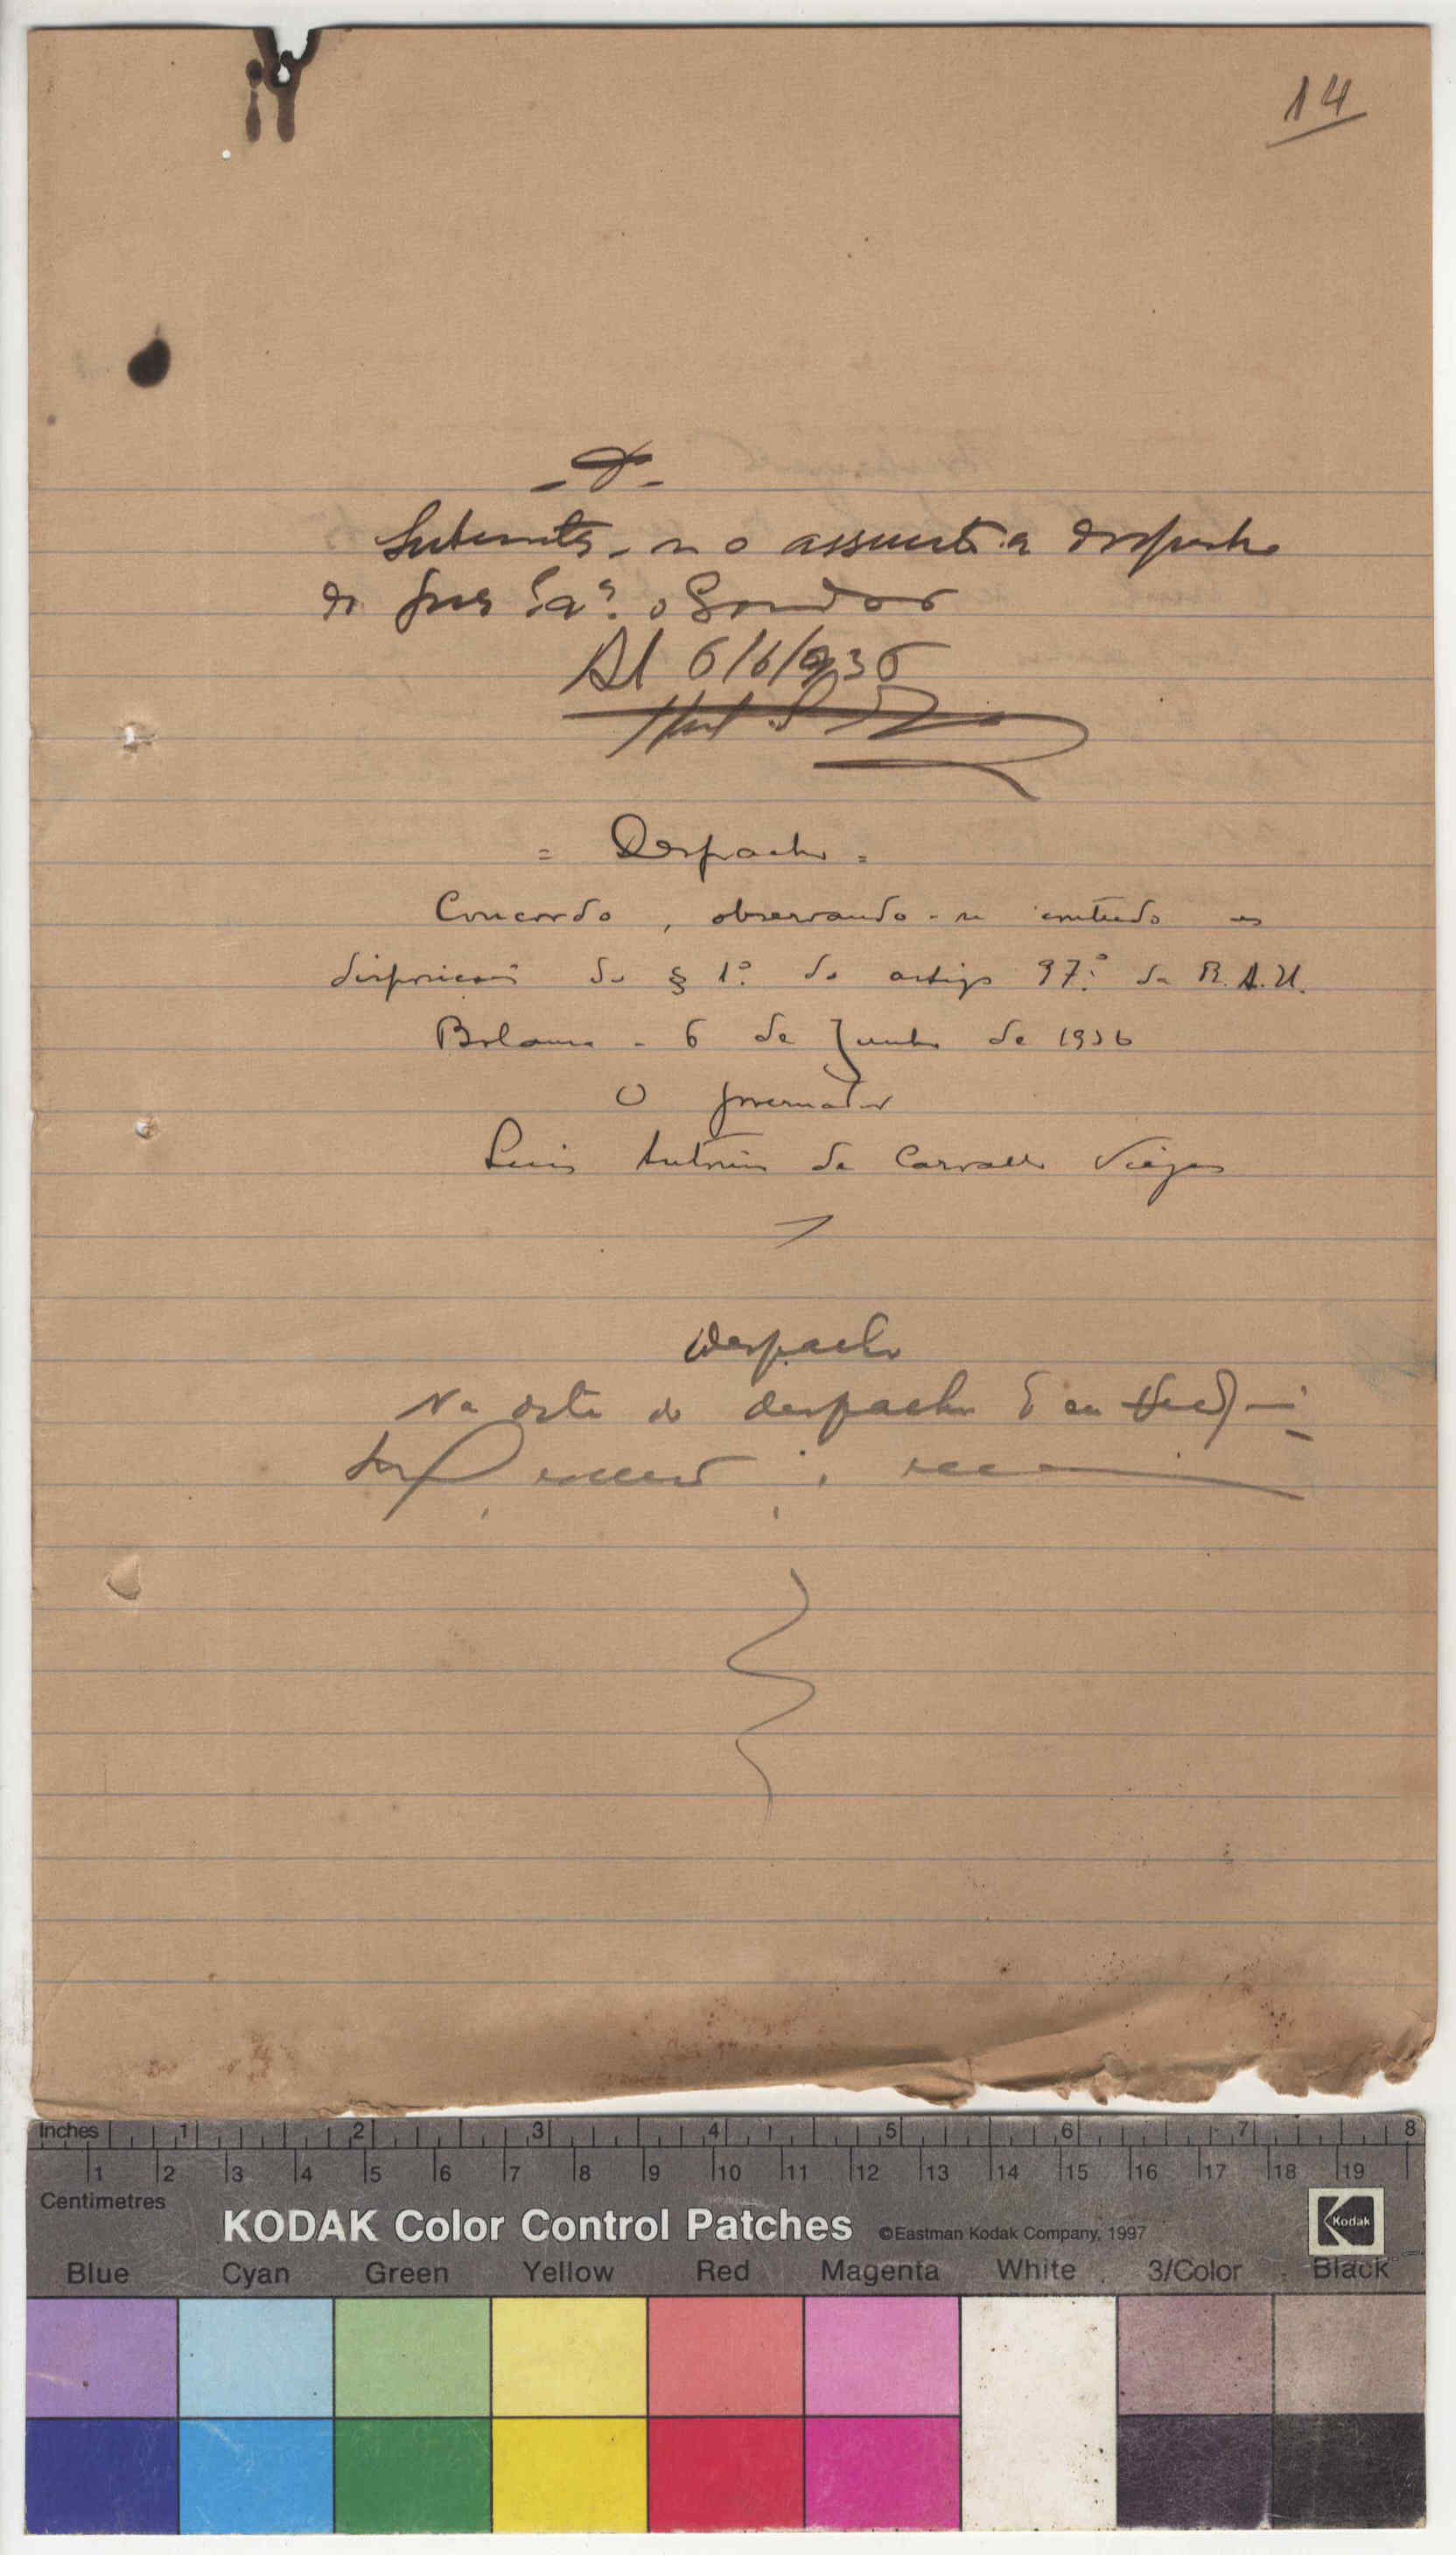 14
Submeta-se o assunto a despacho
de Sua Exª. o Gov.dor
Al 6/6/936
= Despacho =
Concordo, observando-se contudo as
disposições do § 1º do artigo 97º da R.A.U.
Bolama - 6 de Junho de 1936
O governador
Luis António de Carvalho Viegas
Despacho
Na data do despacho
Inches 1 2 3 4 5 6 7 8
1 2 3 4 5 6 7 8 9 10 11 12 13 14 15 16 17 18 19
Centimetres
KODAK Color Control Patches ©Eastman Kodak Company, 1997 Kodak
Blue Cyan Green Yellow Red Magenta White 3/Color Black